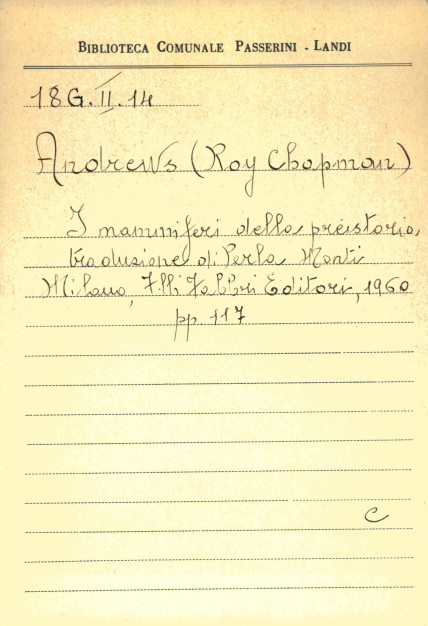 BIBLIOTECA COMUNALE PASSERINI - LANDI
18G.II.14
Andrews (Roy Chapman)
I mammiferi della preistoria,
traduzione di Perla Monti
Milano, F.lli Fabbri Editori, 1960
pp. 117
C